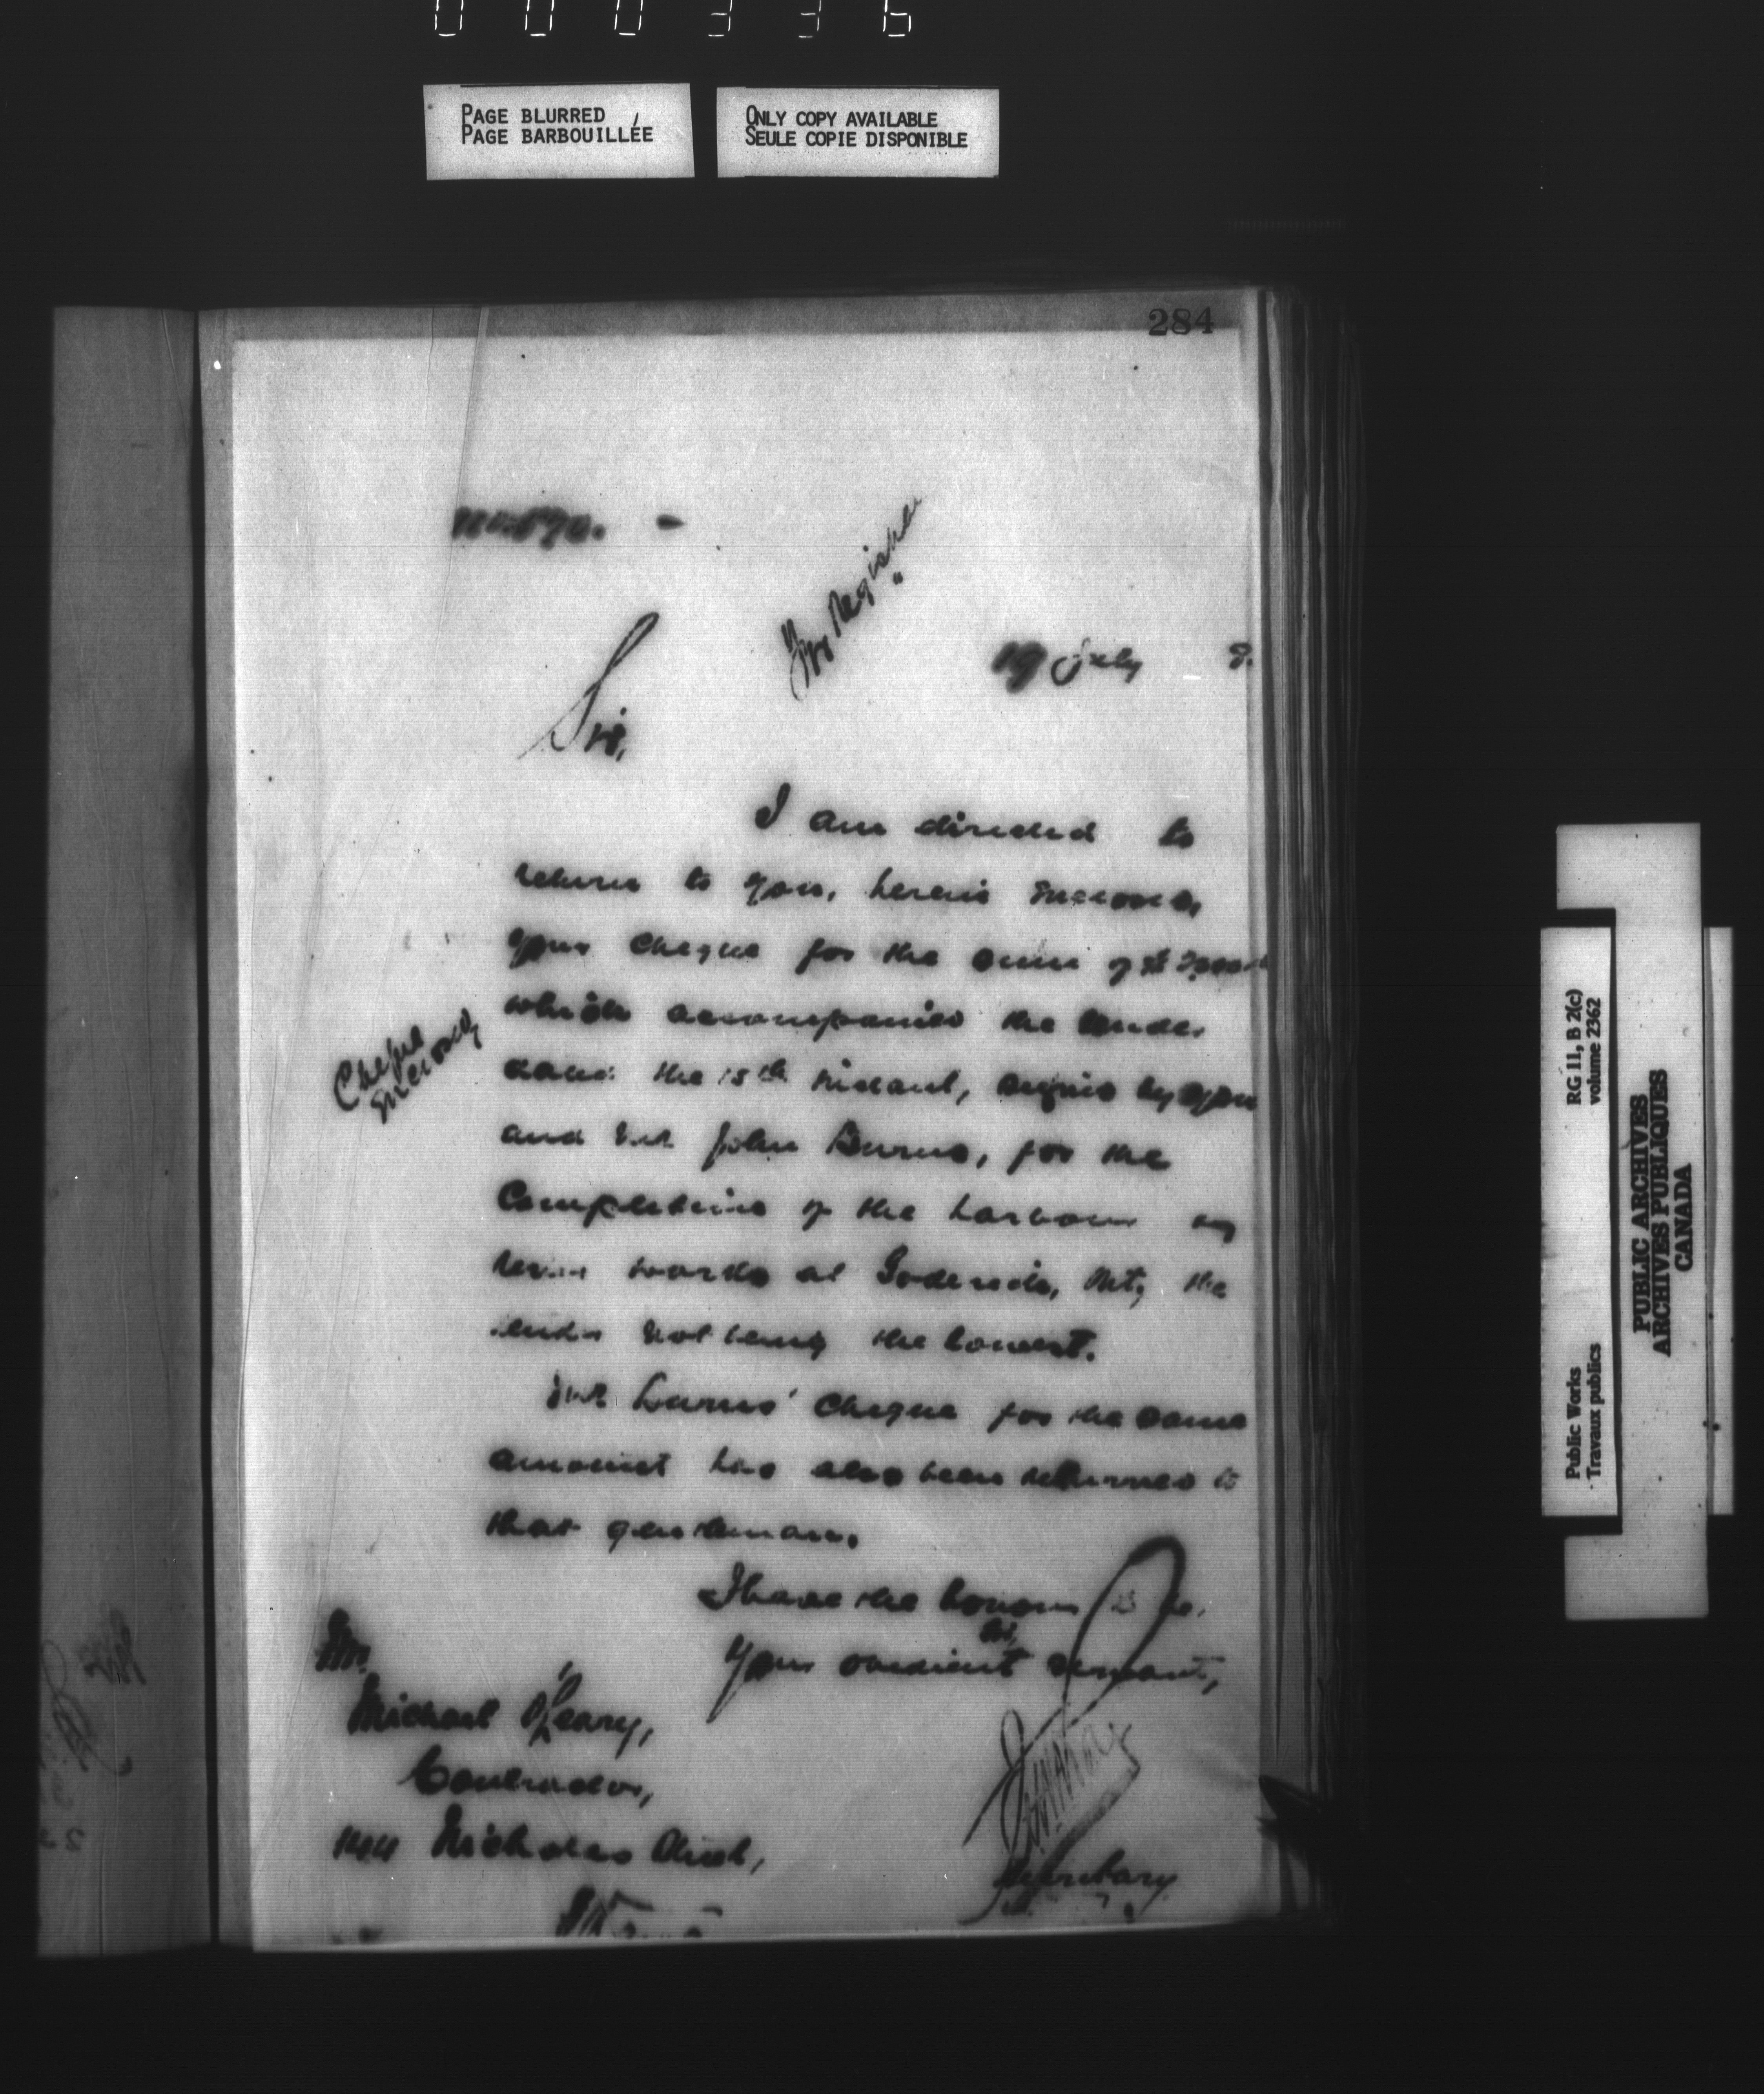 000336
PAGE BLURRED
PAGE BARBOUILLÉE
ONLY COPY AVAILABLE
SEULE COPIE DISPONIBLE
284
By Registrar
19 July 8
Sir,
I am directed to
return to you, herein enclosed,
your cheque for the sum of $
which accompanied the tender
dated the 15th instant, signed by you
and Mr John Burns, for the
Completion of the harbour
works at Goderich, Ont, the
tender not being the lowest.
Mr Burns' cheque for the same
amount has also been returned to
that gentleman.
Cheque
enclosed
I have the honour to be,
Sir,
Your obedient servant,
Secretary
Mr.
Michael O'Leary,
Contractor,
144 Nicholas Street,
RG 11, B 2(c)
volume 2362
Public Works
Travaux publics
PUBLIC ARCHIVES
ARCHIVES PUBLIQUES
CANADA